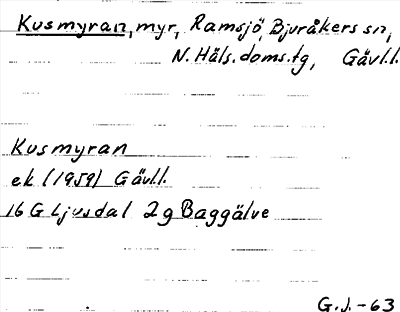 Kusmyran, myr, Ramsjö, Bjuråkers sn,
N. Häls. doms.tg, Gävl.l.
Kusmyran
ek (1959) Gävl.l.
16 G Ljusdal 2g Baggälve
G.J.-63